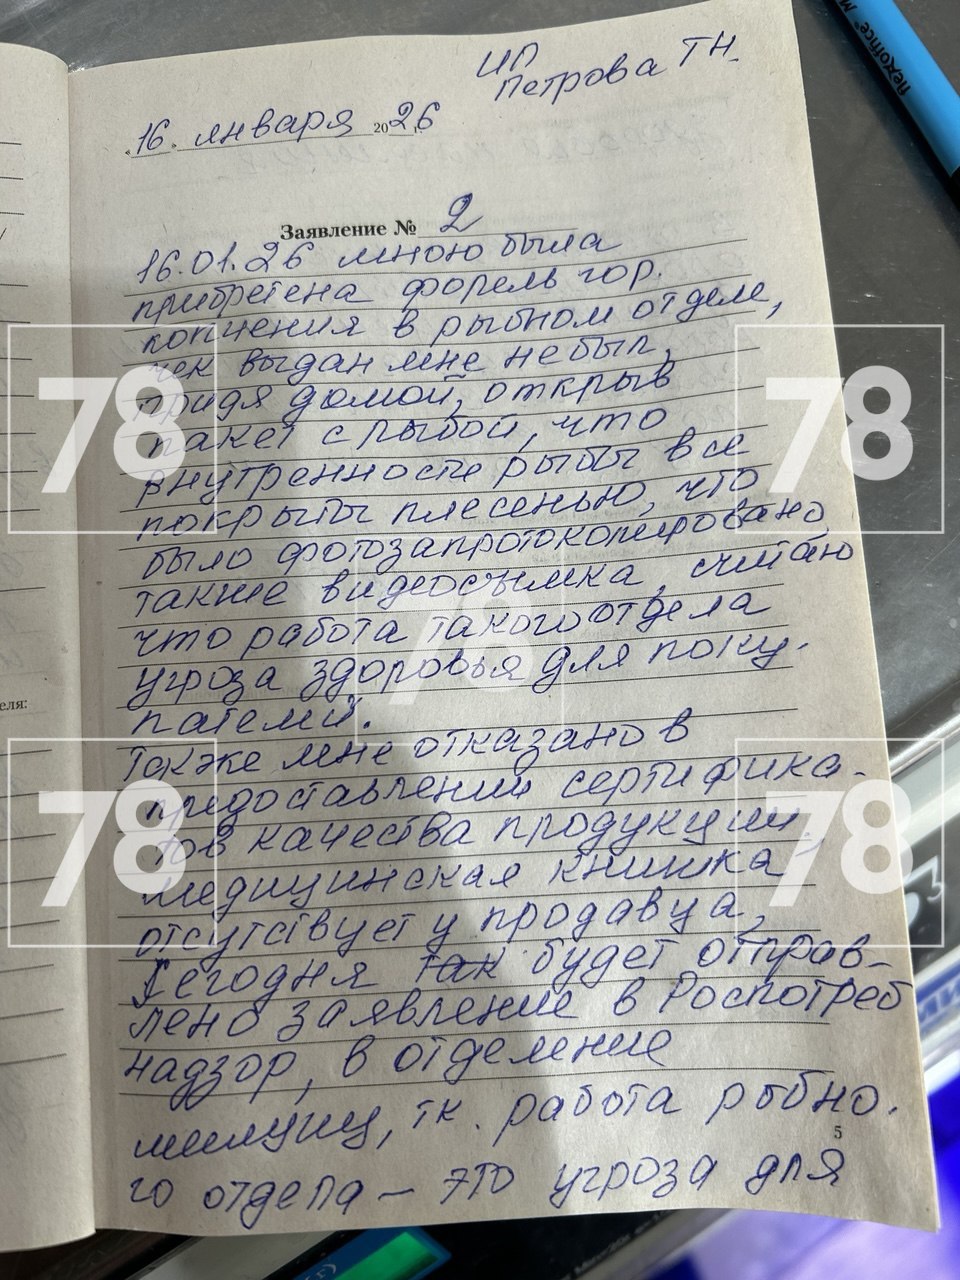 ИП
Петрова Т Н.
"16" января 2026
Заявление № 2
16.01.26 мною была
прибретена форель гор.
копчения в рыбном отделе,
чек выдан мне не был,
придя домой, открыв
пакет с рыбой, что
внутренности рыбы все
покрыты плесенью, что
было фотозапротоколировано,
также видеосъмка, считаю
что работа такого отдела
угроза здоровья для поку-
пателей.
Также мне отказано в
предоставлении сертифика-
тов качества продукции,
медицинская книжка
отсутствует у продавца,
Сегодня так будет отправ-
лено заявление в Роспотреб
надзор, в отделение
милиции, тк. работа рыбно-
го отдела – это угроза для
5
еля:
flexoffice
78
78
78
78
78